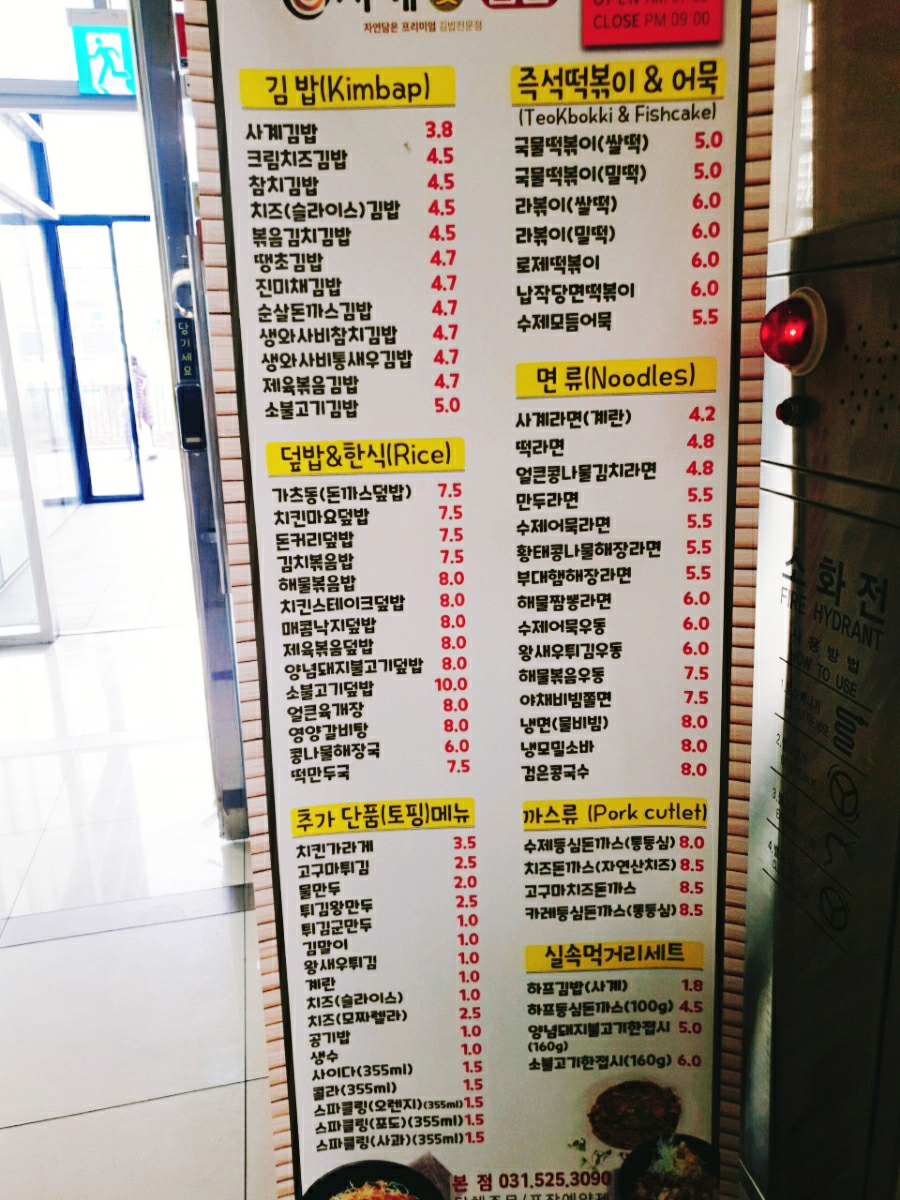 자연담은 프리미엄 김밥전문점
CLOSE PM 09:00
김 밥(Kimbap)
사계김밥 3.8
크림치즈김밥 4.5
참치김밥 4.5
치즈(슬라이스)김밥 4.5
볶음김치김밥 4.5
땡초김밥 4.7
진미채김밥 4.7
순살돈까스김밥 4.7
생와사비참치김밥 4.7
생와사비통새우김밥 4.7
제육볶음김밥 4.7
소불고기김밥 5.0
덮밥&한식(Rice)
가츠동(돈까스덮밥) 7.5
치킨마요덮밥 7.5
돈커리덮밥 7.5
김치볶음밥 7.5
해물볶음밥 8.0
치킨스테이크덮밥 8.0
매콤낙지덮밥 8.0
제육볶음덮밥 8.0
양념돼지불고기덮밥 8.0
소불고기덮밥 10.0
얼큰육개장 8.0
영양갈비탕 8.0
콩나물해장국 6.0
떡만두국 7.5
추가 단품(토핑)메뉴
치킨가라게 3.5
고구마튀김 2.5
물만두 2.0
튀김왕만두 2.5
튀김군만두 1.0
김말이 1.0
왕새우튀김 1.0
계란 1.0
치즈(슬라이스) 1.0
치즈(모짜렐라) 2.5
공기밥 1.0
생수 1.0
사이다(355ml) 1.5
콜라(355ml) 1.5
스파클링(오렌지)(355ml) 1.5
스파클링(포도)(355ml) 1.5
스파클링(사과)(355ml) 1.5
즉석떡볶이 & 어묵
(TeoKbokki & Fishcake)
국물떡볶이(쌀떡) 5.0
국물떡볶이(밀떡) 5.0
라볶이(쌀떡) 6.0
라볶이(밀떡) 6.0
로제떡볶이 6.0
납작당면떡볶이 6.0
수제모듬어묵 5.5
면 류(Noodles)
사계라면(계란) 4.2
떡라면 4.8
얼큰콩나물김치라면 4.8
만두라면 5.5
수제어묵라면 5.5
황태콩나물해장라면 5.5
부대햄해장라면 5.5
해물짬뽕라면 6.0
수제어묵우동 6.0
왕새우튀김우동 6.0
해물볶음우동 7.5
야채비빔쫄면 7.5
냉면(물비빔) 8.0
냉모밀소바 8.0
검은콩국수 8.0
까스류 (Pork cutlet)
수제등심돈까스(통등심) 8.0
치즈돈까스(자연산치즈) 8.5
고구마치즈돈까스 8.5
카레등심돈까스(통등심) 8.5
실속먹거리세트
하프김밥(사계) 1.8
하프등심돈까스(100g) 4.5
양념돼지불고기한접시 5.0
(160g)
소불고기한접시(160g) 6.0
본 점 031.525.3090
당기세요
소화전
FIRE HYDRANT
사용방법
HOW TO USE